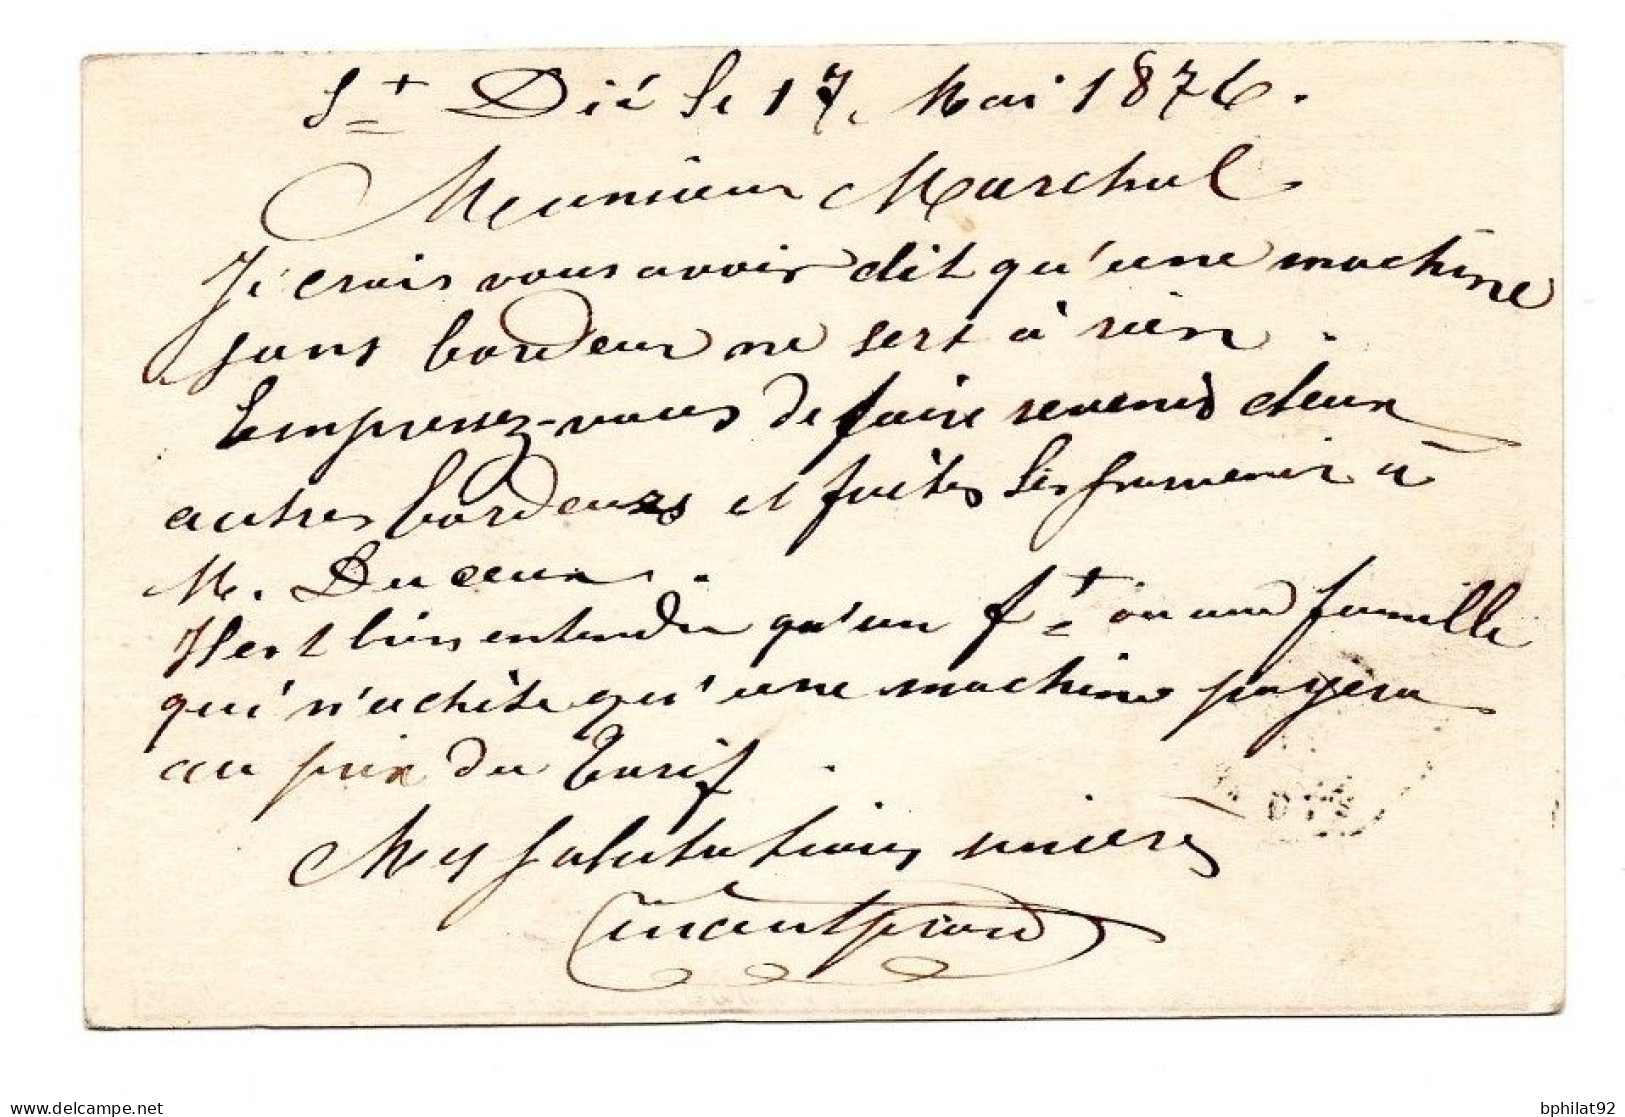 St Dié le 17 Mai 1876.
Monsieur Marchal
Je crois vous avoir dit qu'une machine
sans bordeur ne sert à rien.
Empressez-vous de faire revenir deux
autres bordeurs et faites les parvenir à
M.
Il est bien entendu qu'un ft ou une famille
qui n'achète qu'une machine payera
au prix du Tarif.
Mes salutations sincères
www.delcampe.net
bphilat92